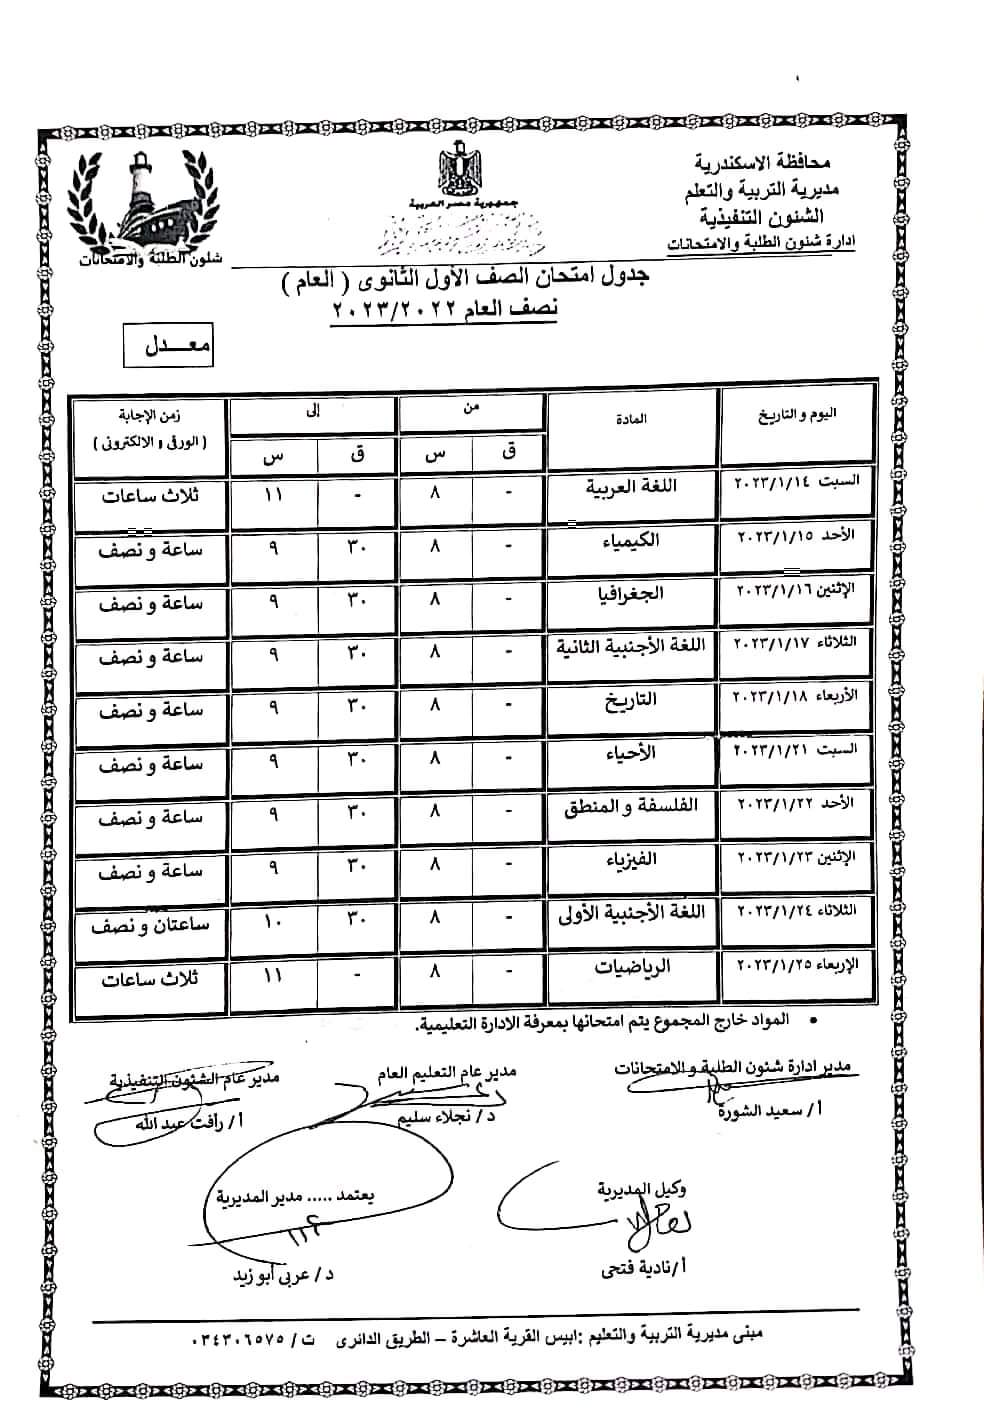 محافظة الاسكندرية
مديرية التربية والتعلم
الشئون التنفيذية
ادارة شئون الطلبة والامتحانات
جمهورية مصر العربية
شئون الطلبة والامتحانات
جدول امتحان الصف الأول الثانوى ( العام )
نصف العام ٢٠٢٣/٢٠٢٢
معدل
اليوم و التاريخ المادة من إلى زمن الإجابة
( الورقى و الالكترونى )
ق س ق س
السبت ٢٠٢٣/١/١٤ اللغة العربية - ٨ - ١١ ثلاث ساعات
الأحد ٢٠٢٣/١/١٥ الكيمياء - ٨ ٣٠ ٩ ساعة و نصف
الإثنين ٢٠٢٣/١/١٦ الجغرافيا - ٨ ٣٠ ٩ ساعة و نصف
الثلاثاء ٢٠٢٣/١/١٧ اللغة الأجنبية الثانية - ٨ ٣٠ ٩ ساعة و نصف
الأربعاء ٢٠٢٣/١/١٨ التاريخ - ٨ ٣٠ ٩ ساعة و نصف
السبت ٢٠٢٣/١/٢١ الأحياء - ٨ ٣٠ ٩ ساعة و نصف
الأحد ٢٠٢٣/١/٢٢ الفلسفة و المنطق - ٨ ٣٠ ٩ ساعة و نصف
الإثنين ٢٠٢٣/١/٢٣ الفيزياء - ٨ ٣٠ ٩ ساعة و نصف
الثلاثاء ٢٠٢٣/١/٢٤ اللغة الأجنبية الأولى - ٨ ٣٠ ١٠ ساعتان و نصف
الإربعاء ٢٠٢٣/١/٢٥ الرياضيات - ٨ - ١١ ثلاث ساعات
• المواد خارج المجموع يتم امتحانها بمعرفة الادارة التعليمية.
مدير ادارة شئون الطلبة والامتحانات مدير عام التعليم العام مدير عام الشئون التنفيذية
أ/ سعيد الشورة د/ نجلاء سليم أ/ رافت عبد الله
وكيل المديرية يعتمد ..... مدير المديرية
أ/نادية فتحى د/ عربى أبو زيد
مبنى مديرية التربية والتعليم :ابيس القرية العاشرة – الطريق الدائرى ت/ ٠٣٤٣٠٦٥٧٥